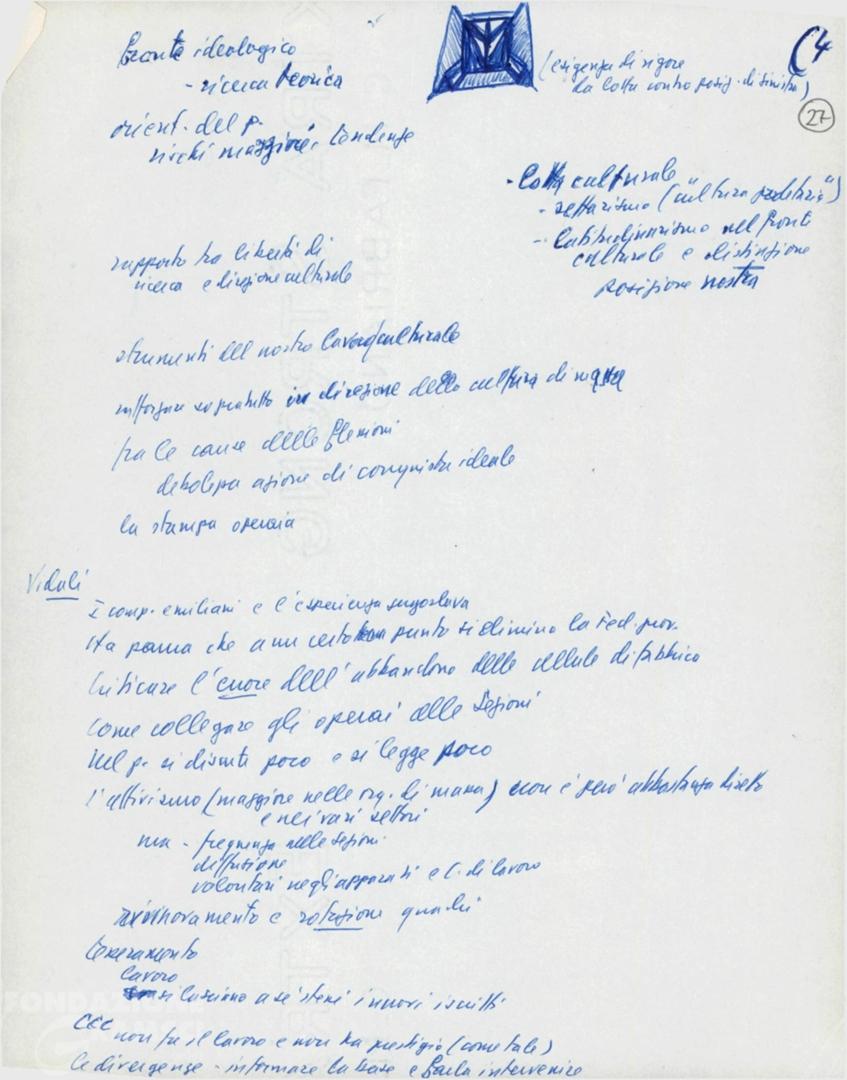 (4
27
fronte ideologico
- ricerca teorica
(esigenza di rigore
la lotta contro posiz. di sinistra)
orient. del p.
rischi maggiori: tendenze
- lotta culturale
- settarismo ("cultura proletaria")
- latitudinarismo nel fronte
culturale e distinzione
posizione nostra
rapporto tra libertà di
ricerca e direzione culturale
strumenti del nostro lavoro culturale
rafforzare sopratutto in direzione della cultura di massa
fra le cause delle flessioni
debolezza azione di conquista ideale
la stampa operaia
Vidali
I comp. emiliani e l'esperienza jugoslava
Ha paura che a un certo punto si elimino la Fed. prov.
Criticare l'errore dell'abbandono delle cellule di fabbrica
Come collegare gli operai alle Sezioni
Nel p. si discute poco e si legge poco
l'attivismo (maggiore nelle org. di massa) non è però abbastanza diretto
e nei vari settori
ma - frequenza nelle Sezioni
diffusione
volontari negli apparati e C. di lavoro
rinnovamento e rotazione quadri
Tesseramento
lavoro
si lasciano a se stessi i nuovi iscritti
CCC non fa il lavoro e non ha prestigio (come tale)
Le divergenze - informare la base e farla intervenire
FONDAZIONE
GRAMSCI